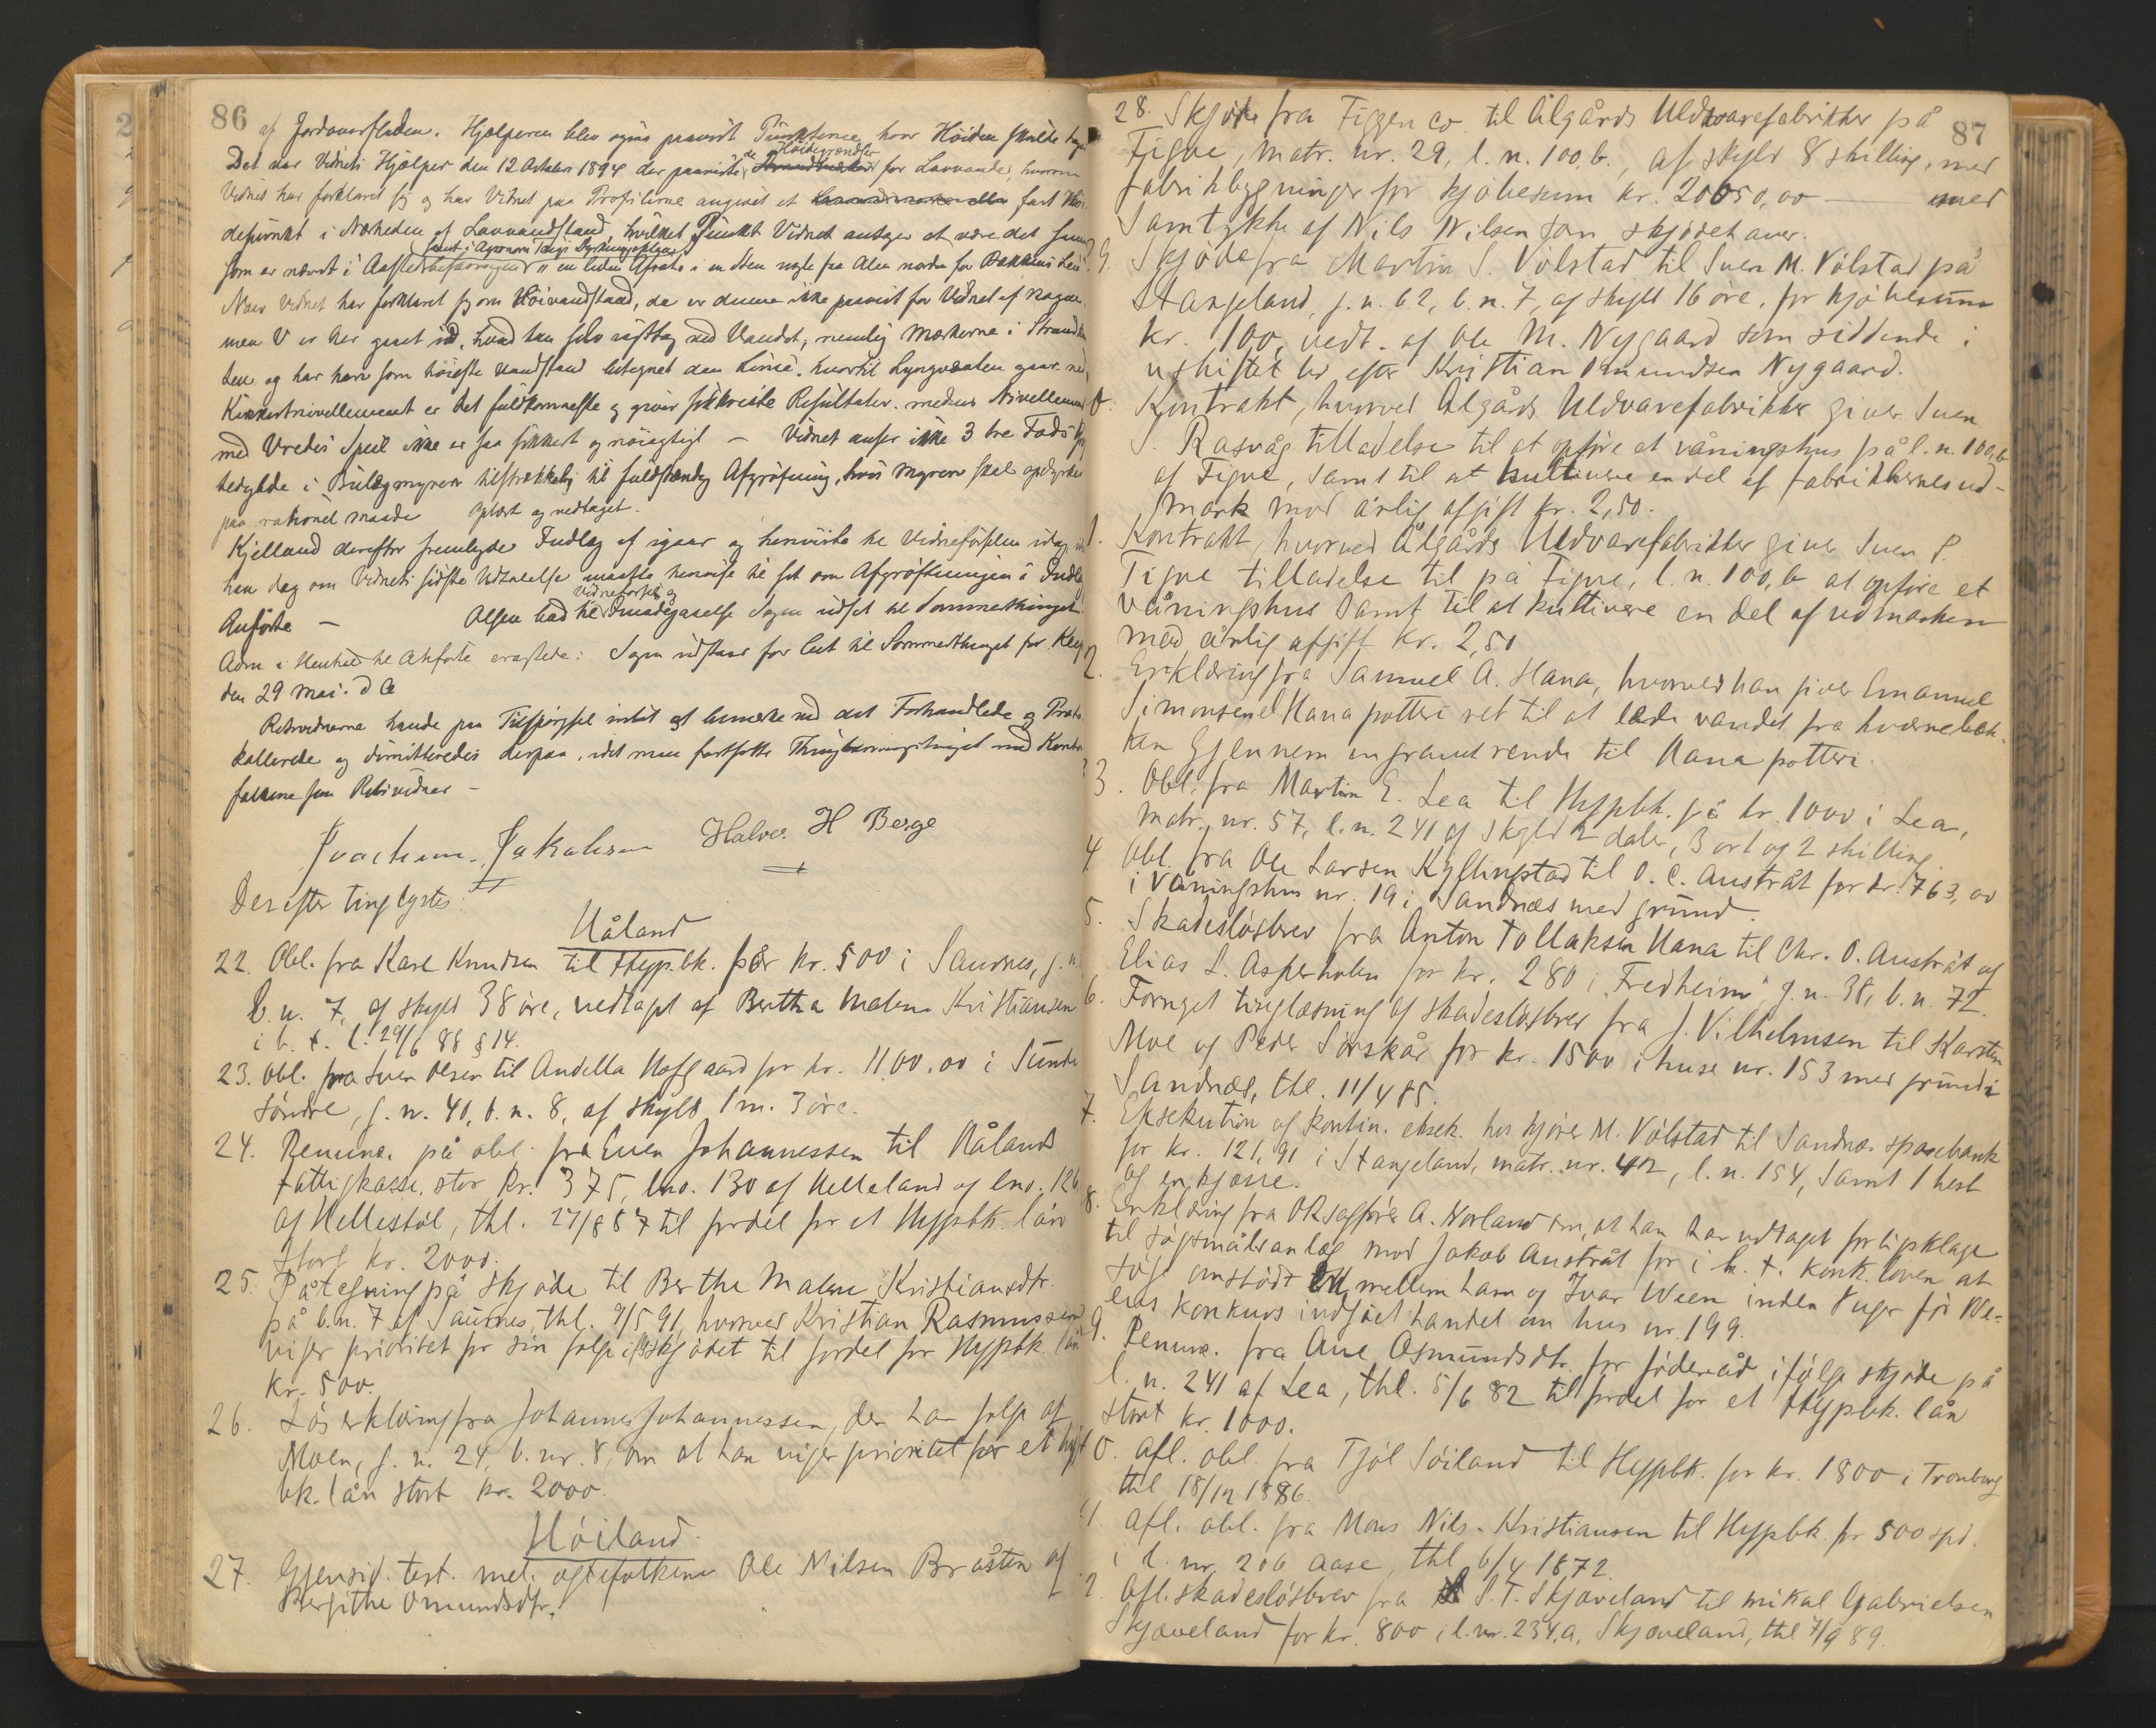 86
af Jordoverfladen. Hjælperen blev ogsaa paavist Punkterne, hvor Höiden skulde tages
Det var Vidnets Hjælper den 12 Oktober 1894 der paaviste de Höidegrændser for Lavvandet, hvorom
Vidnet har forklaret sig og har Vidnet paa Profilerne angivet et fast Höi-
depunkt i Nærheden af Lavvandstand, hvilket Punkt Vidnet antager at være det samme
som er nævnt i samt i Agronom Dyrkningsplan en liden Afsats i en Sten nogle faa Alen norden for Bækkens
Naar Vidnet har forklaret sig om Höivandstand, da er denne ikke paavist for Vidnet af nogen,
men V er her gaaet ud, hvad han selv iagttog ved Vandet, nemlig Mærkerne i
ten og har han som höieste vandstand betegnet den Linie, hvortil gaar ned,
Kikkertnivellement er det fuldkomneste og giver sikkreste Resultater. medens Nivellement
med Vredes Speil ikke er saa sikkert og nöiagtigt – Vidnet anser ikke 3 tre Fods
dybde i tilstrækkelig til fuldstændig Afgröftning, hvis Myren skal opdyrkes
paa rationel maade Oplæst og vedtaget.
Kjelland derefter fremlagde Indlæg af igaar og henviste til Vidneförslen idag
han dog om Vidnets sidste Udtalelse maatte henvise til det om Afgröftningen i Indlæg
Anförte – Olsen bad til Vidneförsel og Imödegaaelse Sagen udsat til Sommerthinget
Adm i Henhold til Anförte eragtede: Sagen udstaar for Lest til Sommerthinget for Klep
den 29 Mai d A
Retsvidnerne havde paa Tilspörgsel intet at bemærke ved det Forhandlede og Proto-
kollerede og dimitteredes derpaa, idet man fortsatte med
som Retsvidner –
Joachim Jakobsen Halvor H Berge
Derefter tinglystes:
Håland
22. Obl. fra Karl Knudsen til Hyp.bk. for kr. 500 i Saurnes, g.n.
b.n. 7, af skyld 38 öre, vedtaget af Bertha Malene Kristiansen
i h. t. l. 29/6 88 § 14.
23. Obl. fra Sven Olsen til Andella Hofgaard for kr. 1100,00 i Sunde
söndre, g.n. 40, b.n. 8, af skyld 1 m. 3 öre.
24. Renunc. på obl. fra Even Johannessen til Hålands
fattigkasse, stor kr. 375, lno. 130 af Helleland og lno. 126
af Hellestöl, thl. 27/8 87 til fordel for et Hypbk. lån
stort kr. 2000.
25. Påtegning på skjöde til Berthe Malene Kristiansdtr.
på b.n. 7 af Saurnes, thl. 9/5 91, hvorved Kristian Rasmussen
viger prioritet for sin folge i skjödet til fordel for Hypbk. lån
kr. 500.
26. Löserklæring fra Johannes Johannessen, der har folge af
Moen, g. n. 24, b. nr. 8, om at han viger prioritet for et hyp
bk. lån stort kr. 2000.
Höiland.
27. Gjensid. test. mel. egtefolkene Ole Nilsen Bråsten og
Bergithe Omundsdtr.
87
28. Skjöde fra Figgen Co til Ålgårds Uldvarefabrikker på
Figve, matr. nr. 29, l. n. 100,b., af skyld 8 skilling, med
fabrikbygninger for kjöbesum kr. 20650,00 – med
Samtykke af Nils Nilsen som skjödehaver.
9. Skjöde fra Martin S. Völstad til Sven M. Völstad på
Stangeland, g. n. 62, b. n. 7, af skyld 16 öre, for kjöbesum
kr. 100, vedt. af Ole M. Nygaard som siddende i
uskiftet bo efter Kristian Omundsen Nygaard.
0. Kontrakt, hvorved Ålgårds Uldvarefabrikker giver Sven
S. Rasvåg tilladelse til at opföre et våningshus på l. n. 100,b
af Figve, samt til at kultivere en del af fabrikkernes ud-
mark mod årlig afgift kr. 2,50.
1. Kontrakt, hvorved Ålgårds Uldvarefabrikker giver Sven P.
Figve tilladelse til på Figve, l. n. 100,b at opföre et
våningshus samt til at kultivere en del af udmarken
mod årlig afgift kr. 2,50
2. Erklæring fra Samuel A. Hana, hvorved han giver Emanuel
Simonsen Hana potteri ret til at lede vandet fra kværnebæk-
ken gjennem en gravet rende til Hana potteri.
3. Obl. fra Martin E. Lea til Hypbk. på kr. 1000 i Lea,
matr. nr. 57, l. n. 241 af skyld 2 daler, 3 ort og 2 skilling.
4 Obl. fra Ole Larsen Kyllingstad til O. C. Austråt for kr. 763,00
i våningshus nr. 19 i Sandnæs med grund.
5. Skadeslösbrev fra Anton Tollaksen Hana til Chr. O. Austråt og
Elias L. Asperholen for kr. 280 i "Fredheim", g. n. 38, b. n. 72.
6. Fornyet tinglæsning af skadeslösbrev fra J. Vilhelmsen til Karsten
Moe og Peder Sörskår for kr. 1500 i huse nr. 153 med grund i
Sandnæs, thl. 11/4 85.
7. Eksekution og kontin. eksek. hos kjörer M. Völstad til Sandnæs sparebank
for kr. 121,91 i Stangeland, matr. nr. 42, l. n. 154, samt 1 hest
og en kjærre.
8. Erklæring fra ORsagförer A. Norland om, at han har udtaget forligsklage
til sögsmålsanlæg mod Jakob Austråt for i h. t. konk. loven at
söge omstödt mellem ham og Ivar Ween inden 8 uger för We-
ens konkurs indgået handel om hus nr. 199.
9. Renunc. fra Ane Osmundsdtr. for föderåd ifölge skjöde på
l. n. 241 af Lea, thl. 5/6 82 til fordel for et Hypbk. lån
stort kr. 1000.
0. Afl. obl. fra Tjöl Söiland til Hypbk. for kr. 1800 i Tronberg
thl 18/12 1886
41. Afl. obl. fra Mons Nils. Kristiansen til Hypbk. for 500 spd.
i l. nr. 206 Aase, thl 6/4 1872.
2. Afl. skadeslösbrev fra S. T. Skjæveland til Mikal Gabrielsen
Skjæveland for kr. 800 i l. nr. 234,a, Skjæveland, thl 7/9 89.